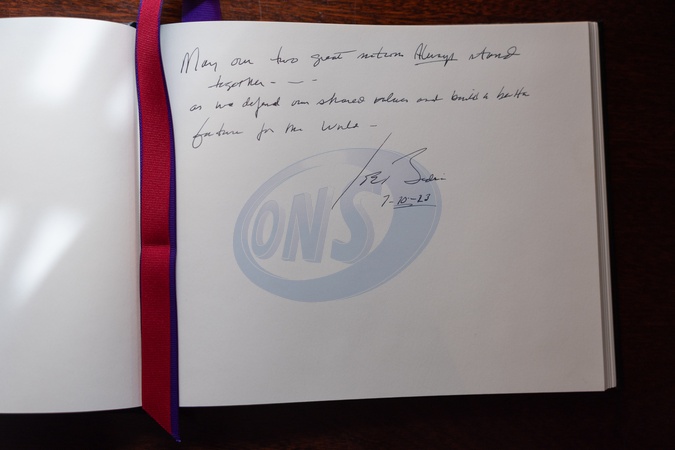 May our two great nations Always stand
together - - -
as we defend our shared values and build a better
future for the World -
Joe Biden
7-10-23
ONS